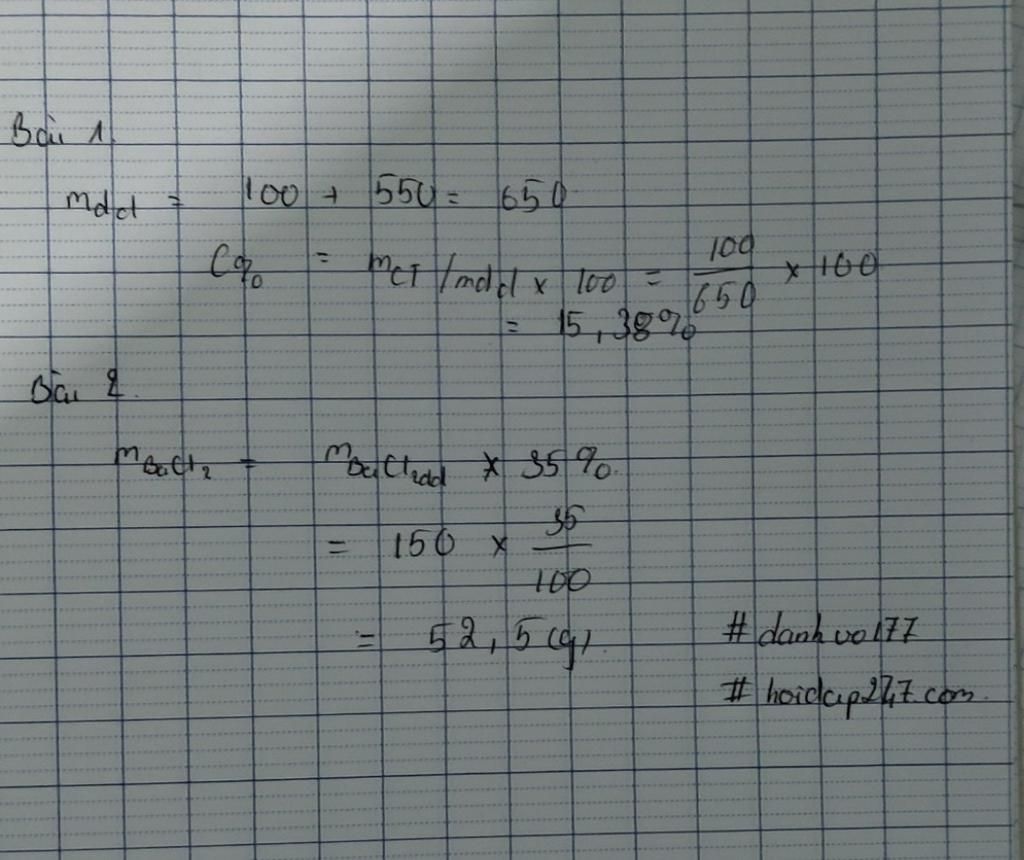 Bài 1
mdd = 100 + 550 = 650
C% = mCT/mdd x 100 = 100/650 x 100
= 15,38%
Bài 2.
mBaCl2 = mBaCl2dd x 35%.
= 150 x 35/100
= 52,5 (g).
#danhvo177
#hoidap247.com.